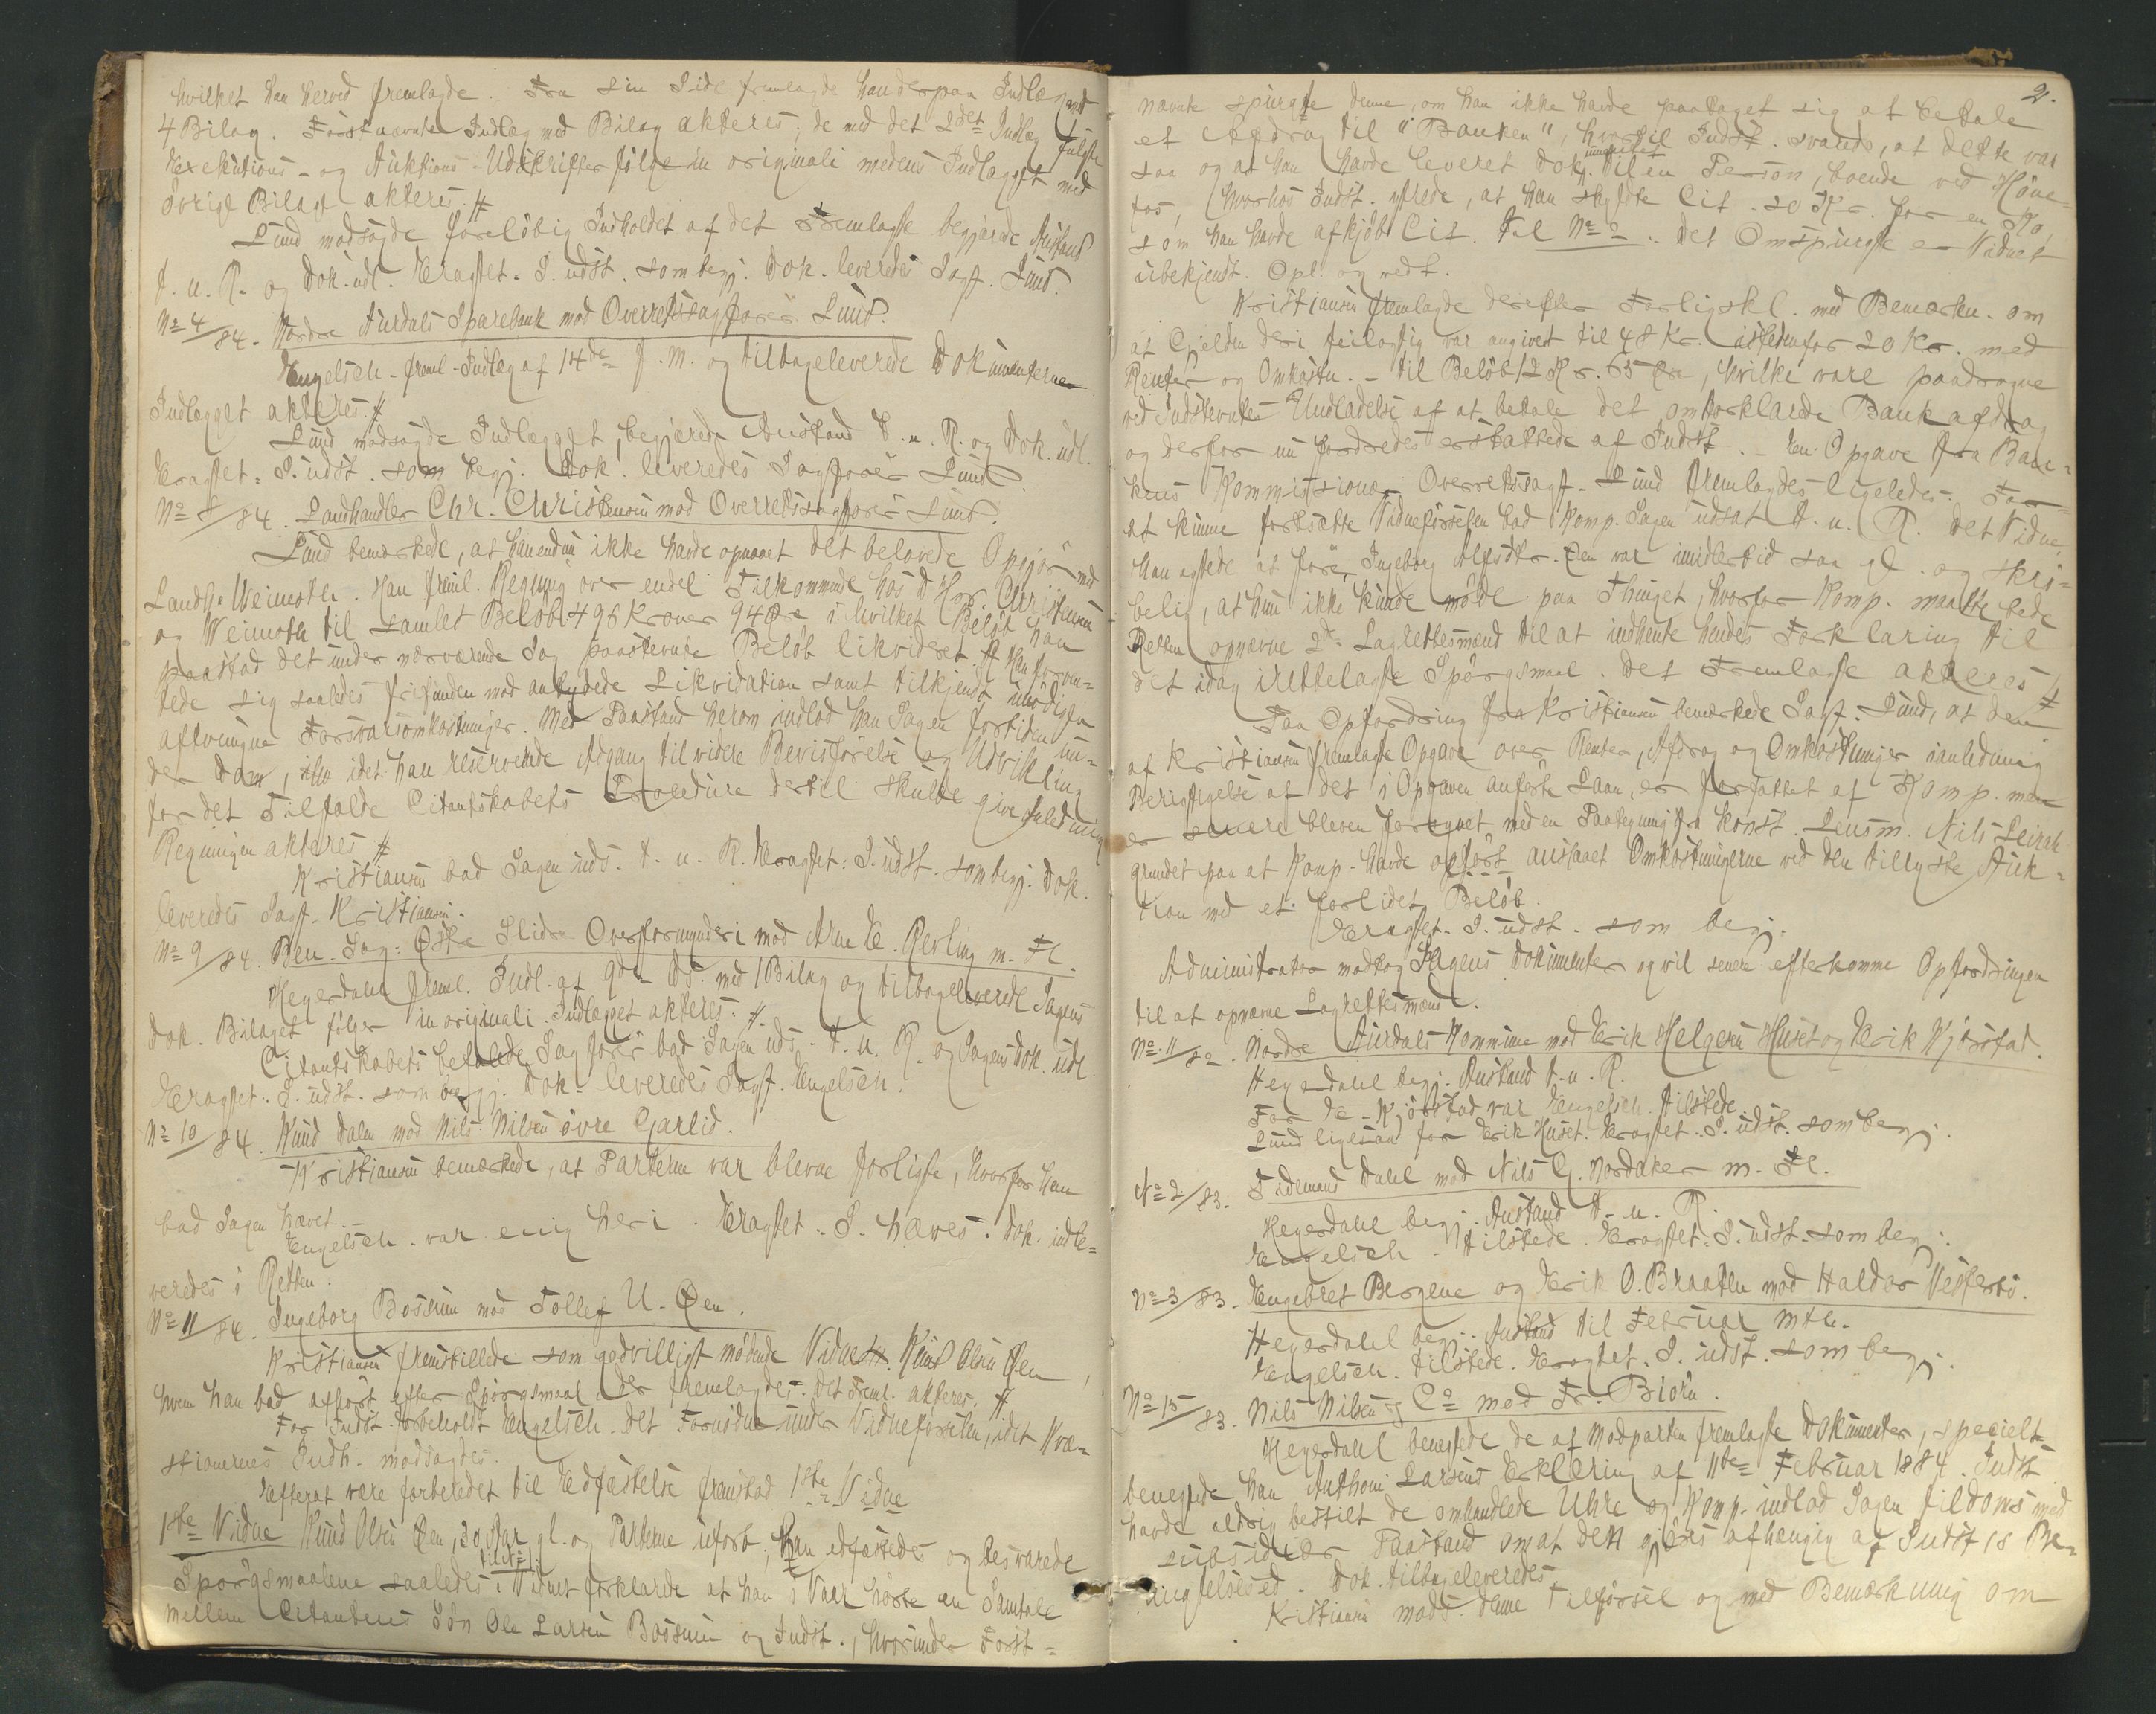 hvilket han herved fremlagde. Fra sin Side fremlagde han derpaa Indlæg med
4 Bilag. Førstnævnte Indlæg med Bilag akteres; de med det 2det Indlæg fulgte
Exekutions- og Auktions-Udskrifter følge in originali medens Indlægget med
øvrige Bilag akteres. #
Lund modsagde foreløbig Indholdet af det Fremlagte begjærede Anstand
t. n. R. og Dok. udl. Eragtet. S. udst. som begj. Dok. leveredes Sagf. Lund.
No 4/84. Nordre Aurdals Sparebank mod Overretssagfører Lund.
Engelsen. freml. Indlæg af 14de d. M. og tilbageleverede Dokumenterne
Indlægget akteres. #
Lund modsagde Indlægget, begjærede Anstand t. n. R. og Dok. udl.
Eragtet: S. udst. som begj. Dok. leveredes Sagfører Lund.
No 8/84. Landhandler Chr. Christensen mod Overretssagfører Lund.
Lund bemærkede, at han endnu ikke havde opnaaet det belovede Opgjør med
Landh. Weimoth. Han freml. Regning over endel Tilkommende hos D'Hrr Christensen
og Weimoth til samlet Beløb 496 Kroner 94 Øre i hvilket Beløb han
paastod det under nærværende Sag paastevnte Beløb likvideret. Han forven-
tede sig saaledes frifunden mod antydede Likvidation samt tilkjendt
aftvungne Forsvarsomkostninger. Med Paastand herom indlod han Sagen fortiden un-
der Dom, idet han reserverede Adgang til videre Bevisførelse og Udvikling
for det Tilfælde Citantskabets Procedure dertil skulde give Anledning
Regningen akteres #
Kristiansen bad Sagen uds. t. n. R. Eragtet: S. udst. som begj. Dok.
leveredes Sagf. Kristiansen.
No 9/84. Ben. Sag: Østre Slidre Overformynderi mod Arne E. Rerling m. Fl.
Heyerdahl freml. Indl. af 9de ds. med 1 Bilag og tilbageleverede Sagens
Dok. Bilaget følger in originali. Indlægget akteres. #
Citantskabets befalede Sagfører bad Sagen uds. t. n. R. og Sagens Dok. udl.
Eragtet: S. udst. som begj. Dok. leveredes Sagf. Engelsen.
No 10/84. Knud Dalen mod Nils Nilsen øvre Garlid.
Kristiansen bemærkede, at Parterne var blevne forligte, hvorfor han
bad Sagen hævet.
Engelsen. var enig heri. Eragtet: S. hæves. Dok. indle-
veredes i Retten.
No 11/84. Ingeborg Bøssum mod Tollef U. Øen.
Kristiansen fremstillede som godvilligt mødende Vidne Knud Olsen Øen,
hvem han bad afhørt efter Spørgsmaal der fremlagdes. Det Freml. akteres. #
For Indst. forbeholdt Engelsen det Fornødne under Vidneførselen, idet Kvæ-
stionernes Indh. modsagdes.
Efterat være forberedet til Edfæstelse fremstod 1ste Vidne
1ste Vidne Knud Olsen Øen, 30 Aar gl. og Parterne uforb., Han edfæstedes og besvarede
Spørgsmaalene saaledes: Vidnet forklarede at han i Vaar hørte en Samtale
mellem Citantens Søn Ole Larsen Bøssum og Indst., hvorunder Først-
2.
nævnte spurgte denne, om han ikke havde paataget sig at betale
et Afdrag til "Banken", hvortil Indst. svarede, at dette var
saa og at han havde leveret Dok. til en Person, boende ved Høne-
fos, hvorhos Indst. ytrede, at han skyldte Cit. 20 Kr. for en Ko,
som han havde afkjøbt Cit. Til No 2. Det Omspurgte er Vidnet
ubekjendt. Opl. og vedt.
Kristiansen fremlagde derefter Forligskl. med Bemærkn. om
at Gjelden deri feilagtig var angivet til 48 Kr. istedenfor 20 Kr. med
Renter og Omkostn. - til Beløb 12 Kr. 65 Øre, hvilke vare paadragne
ved Indstevntes Undladelse af at betale det omforklarede Bankafdrag
og derfor nu fordredes erstattede af Indst. - En Opgave fra Ban-
kens Kommissionær Overretssagf. Lund fremlagdes ligeledes. For
at kunne fortsætte Vidneførselen bad Komp. Sagen udsat t. n. R. Det Vidne,
han agtede at føre, Ingeborg Alfsdtr. Øen var imidlertid saa gl. og skrø-
belig, at hun ikke kunde møde paa Thinget, hvorfor Komp. maatte bede
Retten opnævne 2de Lagrettesmænd til at indhente hendes Forklaring til
det idag irettelagte Spørgsmaal. Det Fremlagte akteres #
Paa Opfordring fra Kristiansen bemærkede Sagf. Lund, at den
af Kristiansen fremlagte Opgave over Renter, Afdrag og Omkostninger ianledning
Berigtigelse af det i Opgaven anførte Laan, er forfattet af Komp. men
er senere bleven forsynet med en Paategning fra Konst. Lensm. Nils Leirah
grundet paa at Komp. havde opført ansaaet Omkostningerne ved den tillyste Auk-
tion med et forlidet Beløb.
Eragtet. S. udst. som begj.
Administrator modtog Sagens Dokumenter og vil senere efterkomme Opfordringen
til at opnævne Lagrettesmænd.
No 11/82. Nordre Aurdals Kommune mod Erik Helgesen Huset og Erik Kjørstad.
Heyerdahl begj. Anstand t. n. R.
For E. Kjørstad var Engelsen tilstede
Lund ligesaa for Erik Huset. Eragtet: S. udst. som begj.
No 2/83. Tidemand Dahl mod Nils G. Nordaker m. Fl.
Heyerdahl begj. Anstand t. n. R.
Engelsen tilstede. Eragtet: S. udst. som begj.
No 3/83. Engebret Bergene og Erik O. Braaten mod Haldor Vesterbø.
Heyerdahl begj. Anstand til Februar Mth.
Engelsen tilstede. Eragtet. S. udst. som begj.
No 15/83. Nils Nilsen & Co mod Fr. Biørn.
Heyerdahl benegtede de af Modparten fremlagte Dokumenter, specielt
benegtede han Anthoni Larsens Erklæring af 11te Februar 1884. Indst.
havde aldrig bestilt de omhandlede Uhre og Komp. indlod Sagen til Doms med
subsidiær Paastand om at den gjøres afhængig af Indst.s Be-
negtelsesed. Dok. tilbageleveredes
Kristiansen mods. denne Tilførsel og med Bemærkning om